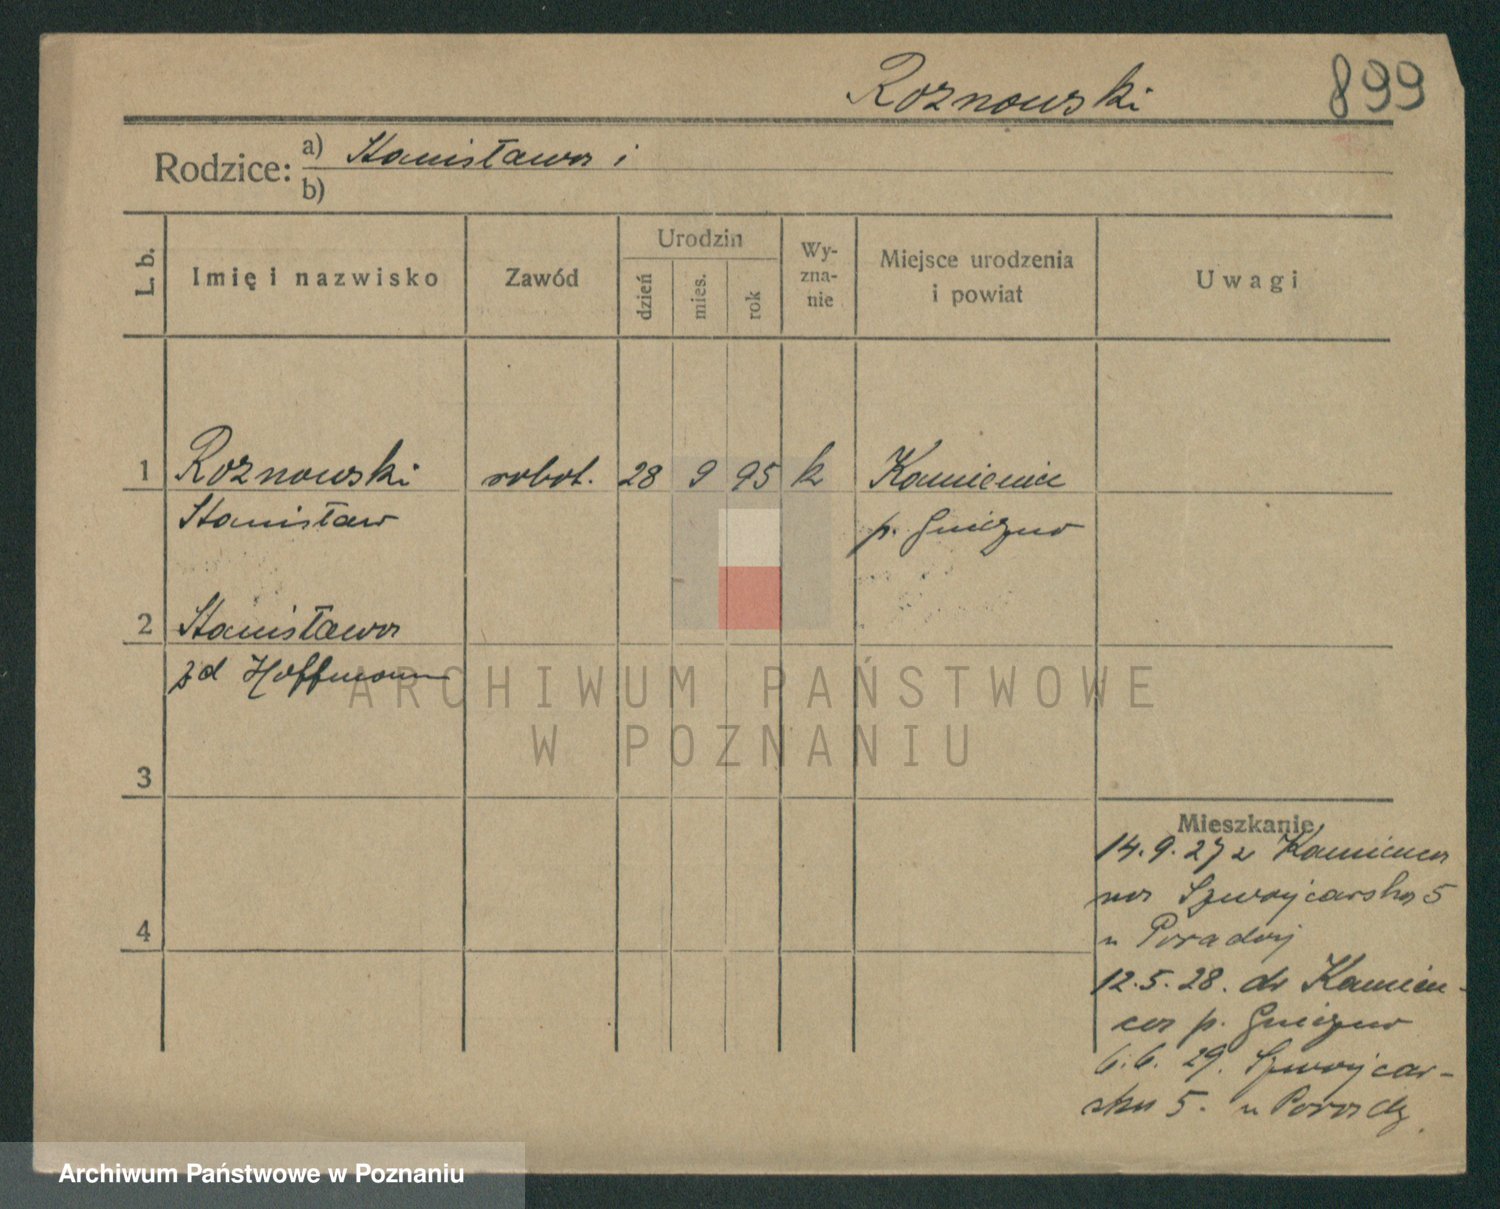 Roznowski
899
Rodzice: a) Stanisława i
b)
L. b.
Imię i nazwisko
Zawód
Urodzin
dzień
mies.
rok
Wy-
zna-
nie
Miejsce urodzenia
i powiat
Uwagi
1 Roznowski robot. 28 9 95 k Kamieniec
Stanisław p. Gniezno
2 Stanisława
zd Hoffmann
ARCHIWUM PAŃSTWOWE
W POZNANIU
3
Mieszkanie
14.9.27 z Kamieńca
na Szwajcarska 5
u
4
12.5.28. do Kamień-
ca p. Gniezno
6.6.29. Szwajcar-
ska 5. u
Archiwum Państwowe w Poznaniu